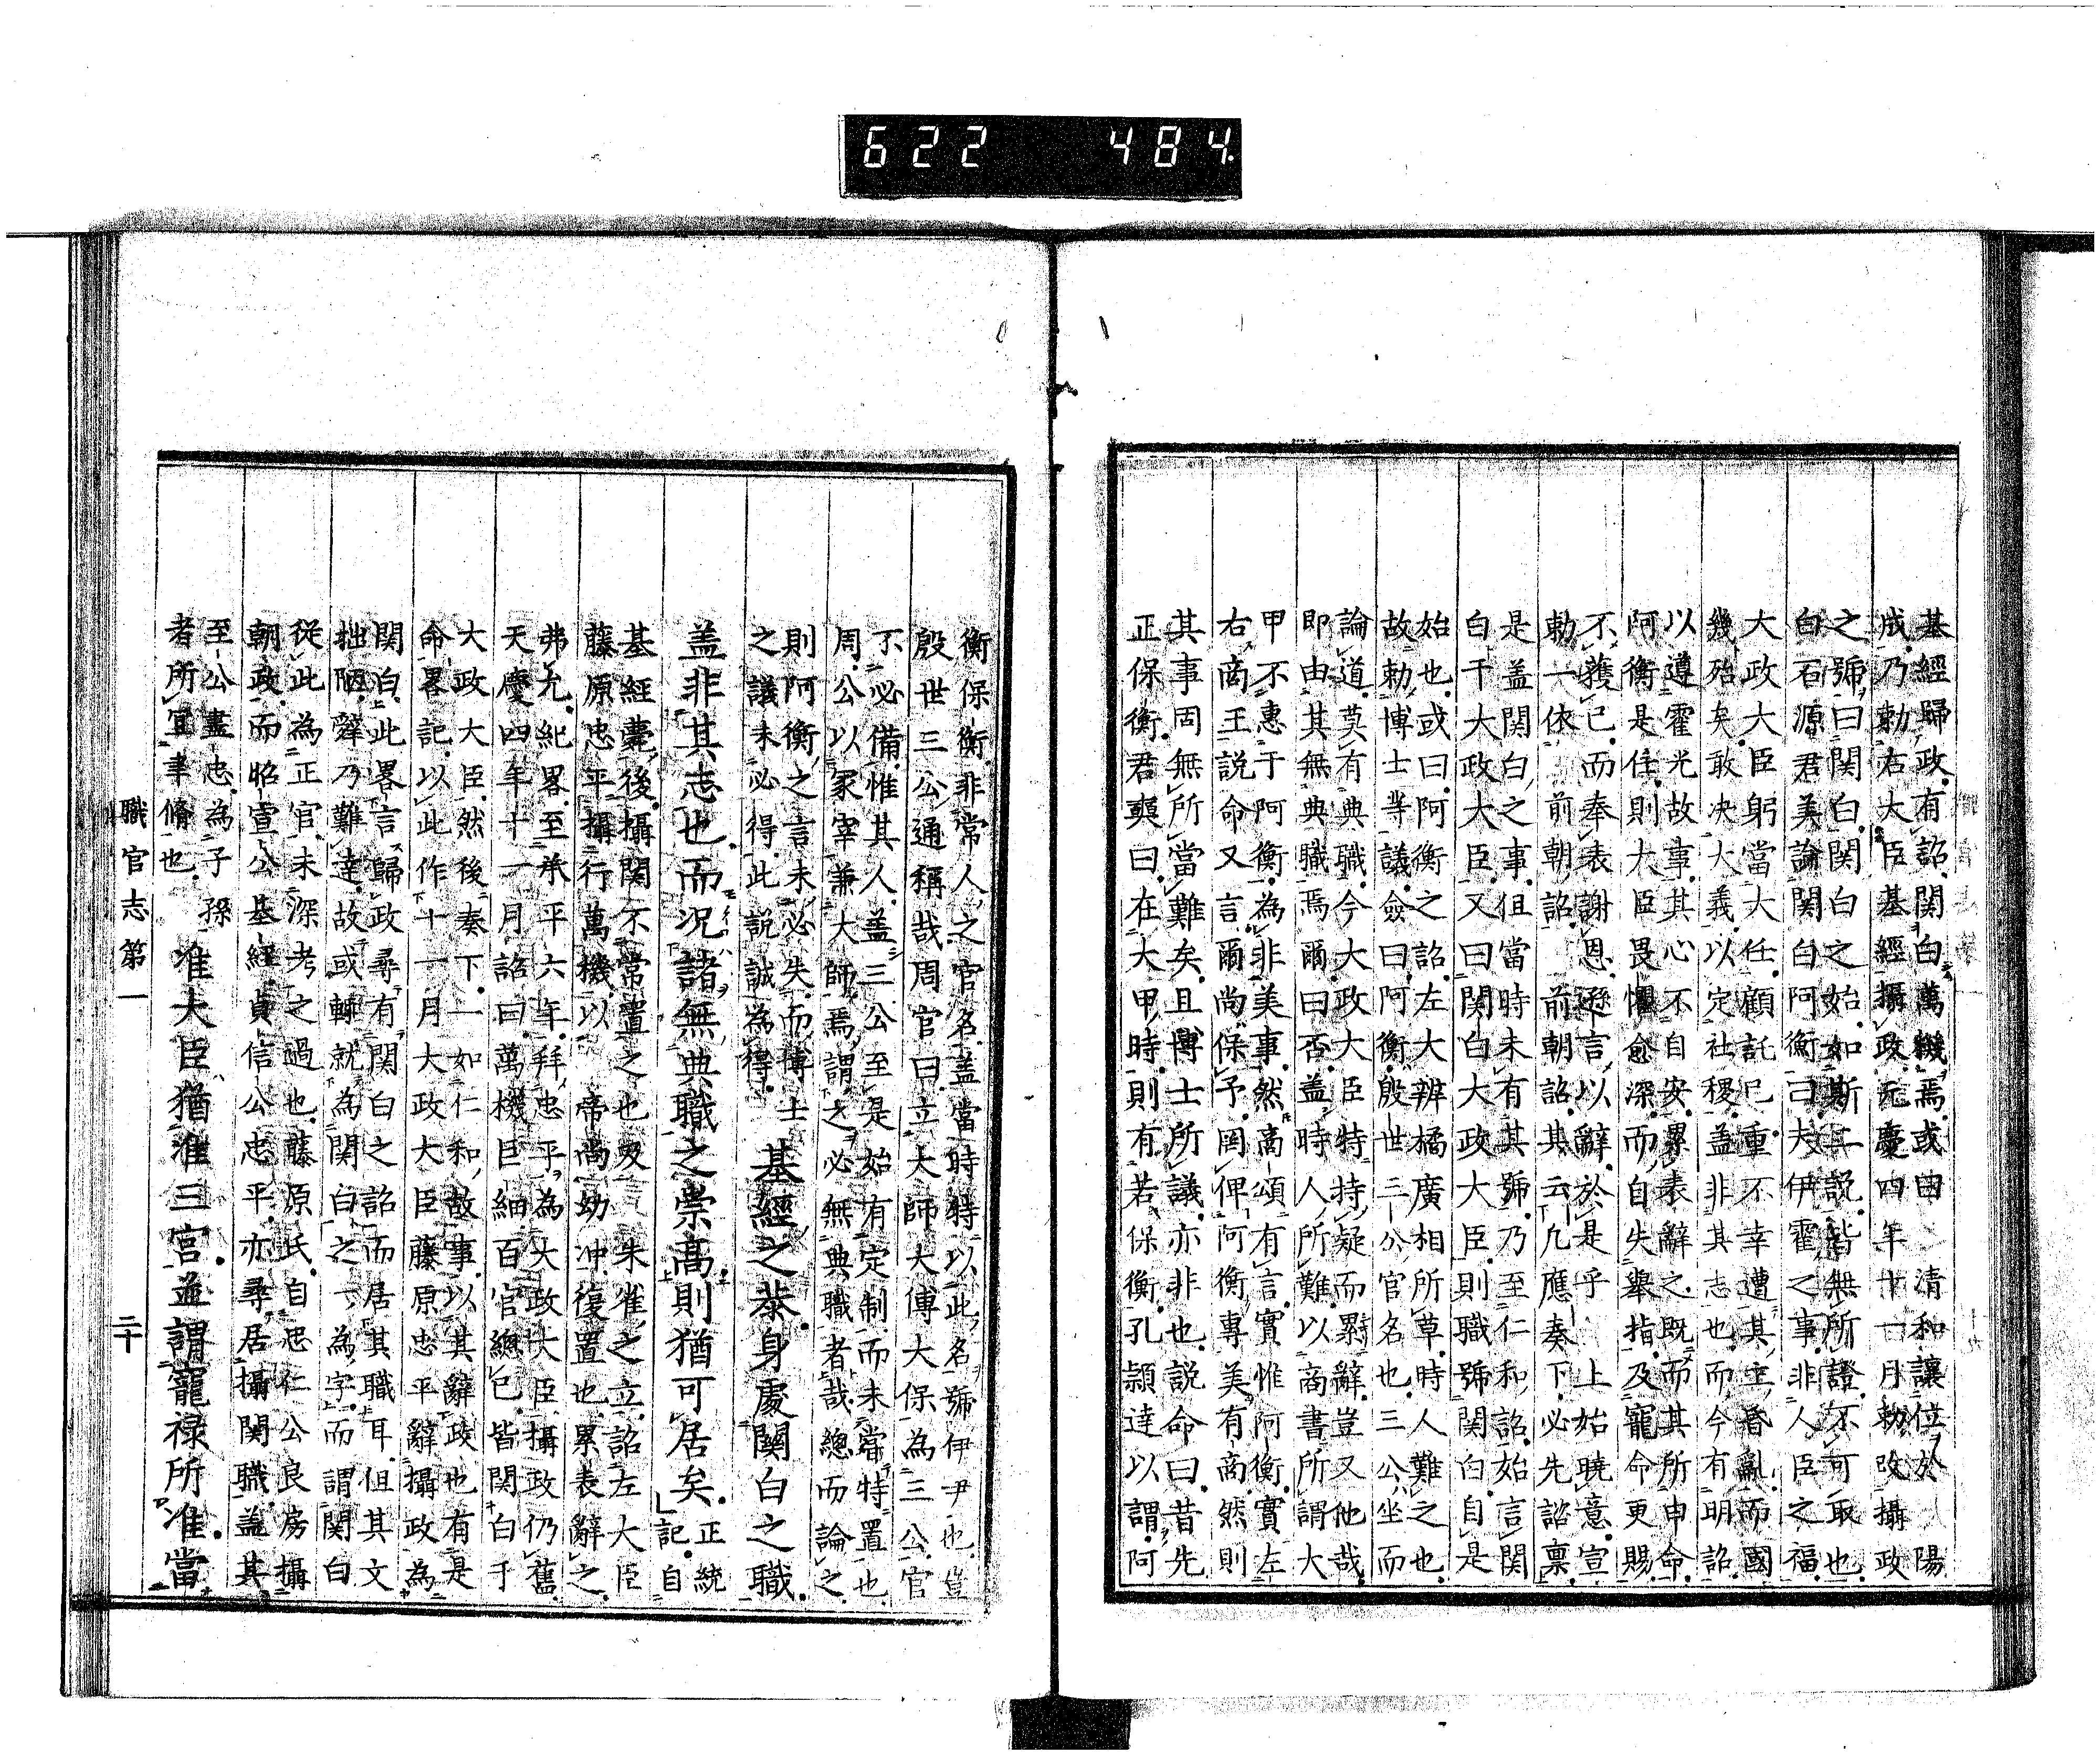 622 484
基經歸政有詔関白萬機焉或由 清和讓位於 陽
成乃勅右大臣基經攝政元慶四年十一月勅改攝政
之號曰関白関白之始如斯二説皆無所證不可取也
白石源君美論関白阿衡曰夫伊霍之事非人臣之福
大政大臣躬當大任顧託已重不幸遭其主昏亂而國
幾殆矣敢决大義以定社稷盖非其志也而今有明詔
以遵霍光故事其心不自安累表辭之既而其所申命
阿衡是任則大臣畏懼愈深而自失舉指及寵命更賜
不獲已而奉表謝恩遜言以辭於是乎 上始曉意宣
勅一依 前朝詔 前朝詔其云凡應奏下必先諮稟
是盖関白之事但當時未有其號乃至仁和詔始言関
白于大政大臣又曰関白大政大臣則職號関白自是
始也或曰阿衡之詔左大辨橘廣相所草時人難之也
故勅博士等議僉曰阿衡殷世三公官名也三公坐而
論道莫有典職今大政大臣特持疑而累辭豈又他哉
即由其無典職焉爾曰否盖時人所難以商書所謂大
甲不惠于阿衡為非美事然商頌有言實惟阿衡實左
右商王説命又言爾尚保予罔俾阿衡專美有商然則
其事固無所當難矣且博士所議亦非也説命曰昔先
正保衡君奭曰在大甲時則有若保衡孔穎達以謂阿
衡保衡非常人之官名盖當時特以此名號伊尹也豈
殷世三公通稱哉周官曰立大師大傅大保為三公官
不必備惟其人盖三公至是始有定制而未嘗特置也
周公以冢宰兼大師焉謂之必無典職者哉總而論之
則阿衡之言未必失而博士
之議未必得此説誠為得 基經之恭身處関白之職
盖非其志也而况諸無典職之崇高則猶可居矣 正統
記自
基經薨後攝関不常置之也及 朱雀之立詔左大臣
藤原忠平攝行萬機以 帝尚幼冲復置也累表辭之
弗允紀畧至承平六年拜忠平為大政大臣攝政仍舊
天慶四年十一月詔曰萬機巨細百官總已皆関白于
大政大臣然後奏下一如仁和故事以其辭政也有是
命畧記以此作十一月大政大臣藤原忠平辭攝政為
関白此畧言歸政尋有関白之詔而居其職耳但其文
拙陋辭乃難達故或轉就為関白之一為字而謂関白
從此為正官未深考之過也藤原氏自忠仁公良房攝
朝政而昭宣公基經貞信公忠平亦尋居攝関職盖其
至公盡忠為子孫
者所宜聿脩也 准大臣猶准三宮並謂寵祿所准當
職官志第一 二十